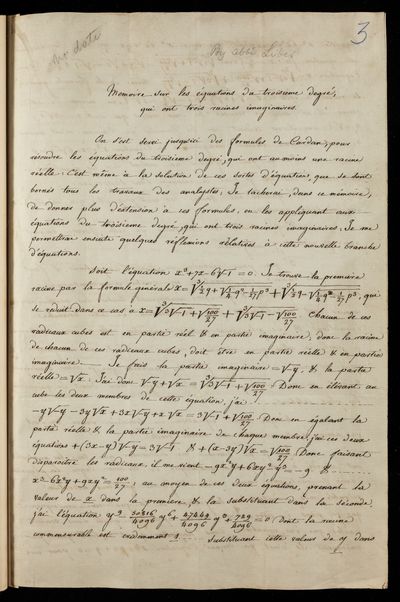 no date
Par abbé Libes
3
Memoire sur les équations du troisieme degré,
qui ont trois racines imaginaires.
On s'est servi jusqu'ici des formules de Cardan, pour
résoudre les équations du troisieme degré, qui ont au moins une racine
réelle. C'est même à la solution de ces sortes d'équations, que se sont
bornés tous les travaux des analystes. Je tacherai, dans ce mémoire,
de donner plus d'extension à ces formules, en les appliquant aux
équations du troisieme degré, qui ont trois racines imaginaires. Je me
permettrai ensuite quelques réflexions rélatives à cette nouvelle branche
d'équations.
Soit l'équation x³+7x-6√-1=0. Je trouve la premiere
racine par la formule générale x=∛(½q+√(¼q²-1/27p³))+∛(½q-√(¼q²-1/27p³)), qui
se reduit dans ce cas à x=∛(3√-1+√(100/27))+∛(3√-1-√(100/27)). Chacun de ces
radicaux cubes est en partie réel & en partie imaginaire; donc la racine
de chacun de ces radicaux cubes, doit être en partie réelle & en partie
imaginaire. Je fais la partie imaginaire =√-y, & la partie
réelle =√x. J'ai donc √-y+√x=∛(3√-1+√(100/27)). Donc en élevant au
cube les deux membres de cette équation, j'ai
-y√-y-3y√x+3x√-y+x√x=3√-1+√(100/27). Donc en égalant la
partie réelle & la partie imaginaire de chaque membre, j'ai ces deux
équations +(3x-y)√-y=3√-1 & +(x-3y)√x=√(100/27). Donc faisant
disparoitre les radicaux, il me vient -9x²y+6xy²-y³=-9 &
x³-6x²y+9xy²=100/27; au moyen de ces deux équations, prenant la
valeur de x dans la premiere & la substituant dans la séconde,
j'ai l'équation y⁹-30816/4096 y⁶+27449/4096 y³+729/4096=0 dont la racine
commensurable est évidemment 1. Substituant cette valeur de y dans